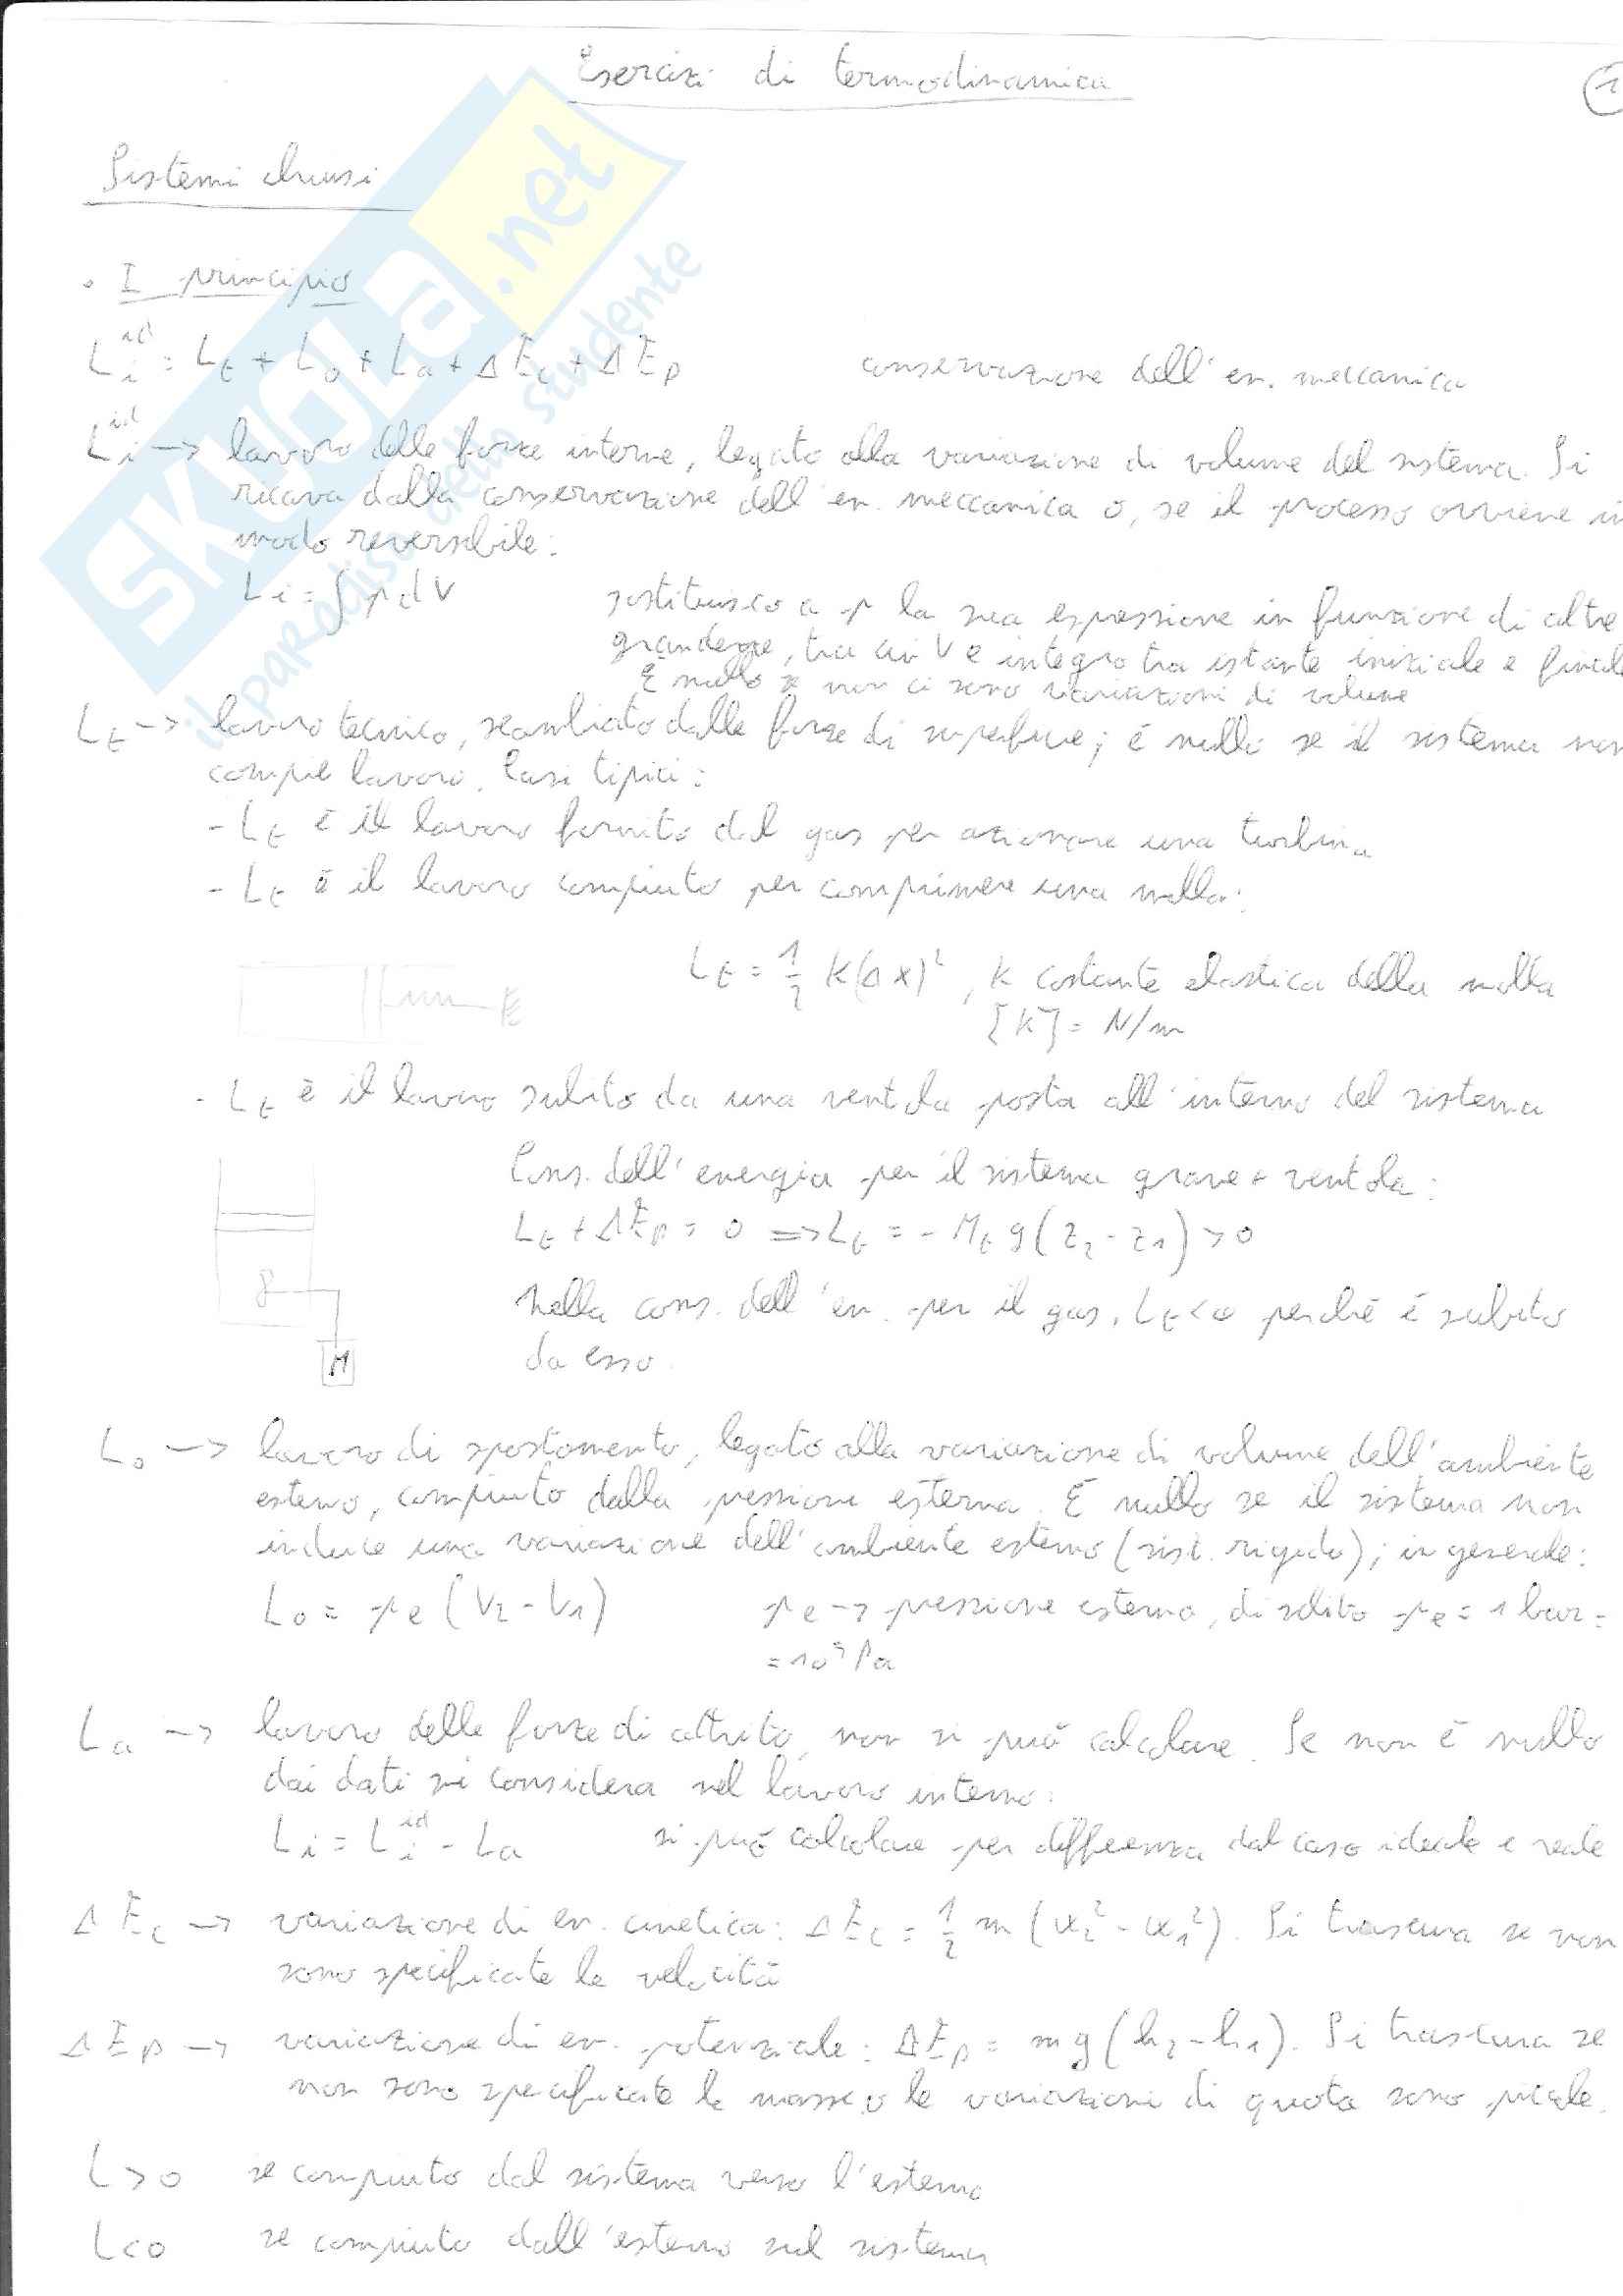 Esercizi di termodinamica
1
Sistemi chiusi
• I principio
L_i^id = L_t + L_o + L_a + ΔE_c + ΔE_p conservazione dell'en. meccanica
L_i^id → lavoro delle forze interne, legato alla variazione di volume del sistema. Si
ricava dalla conservazione dell'en. meccanica o, se il processo avviene in
modo reversibile:
L_i = ∫ p dV sostituisco a p la sua espressione in funzione di altre
grandezze, tra cui V e integro tra istante iniziale e finale
È nullo se non ci sono variazioni di volume
L_t → lavoro tecnico, scambiato dalle forze di superficie; è nullo se il sistema non
compie lavoro. Casi tipici:
- L_t è il lavoro fornito dal gas per azionare una turbina
- L_t è il lavoro compiuto per comprimere una molla:
L_t = 1/2 K(Δx)², K costante elastica della molla
[K] = N/m
- L_t è il lavoro subito da una ventola posta all'interno del sistema
Cons. dell'energia per il sistema grave + ventola:
L_t + ΔE_p = 0 => L_t = - M_t g (z_2 - z_1) > 0
Nella cons. dell'en. per il gas, L_t < 0 perché è subito
da esso.
M
L_o → lavoro di spostamento, legato alla variazione di volume dell'ambiente
esterno, compiuto dalla pressione esterna. È nullo se il sistema non
induce una variazione dell'ambiente esterno (sist. rigido); in generale:
L_o = p_e (V_2 - V_1) p_e → pressione esterna, di solito p_e = 1 bar =
= 10⁵ Pa
L_a → lavoro delle forze di attrito, non si può calcolare. Se non è nullo
dai dati si considera nel lavoro interno:
L_i = L_i^id - L_a si può calcolare per differenza dal caso ideale e reale
ΔE_c → variazione di en. cinetica: ΔE_c = 1/2 m (w_2² - w_1²). Si trascura se non
sono specificate le velocità
ΔE_p → variazione di en. potenziale: ΔE_p = mg (h_2 - h_1). Si trascura se
non sono specificate le masse o le variazioni di quota sono piccole.
L > 0 se compiuto dal sistema verso l'esterno
L < 0 se compiuto dall'esterno sul sistema
SKUOLa.net
il paradiso dello studente